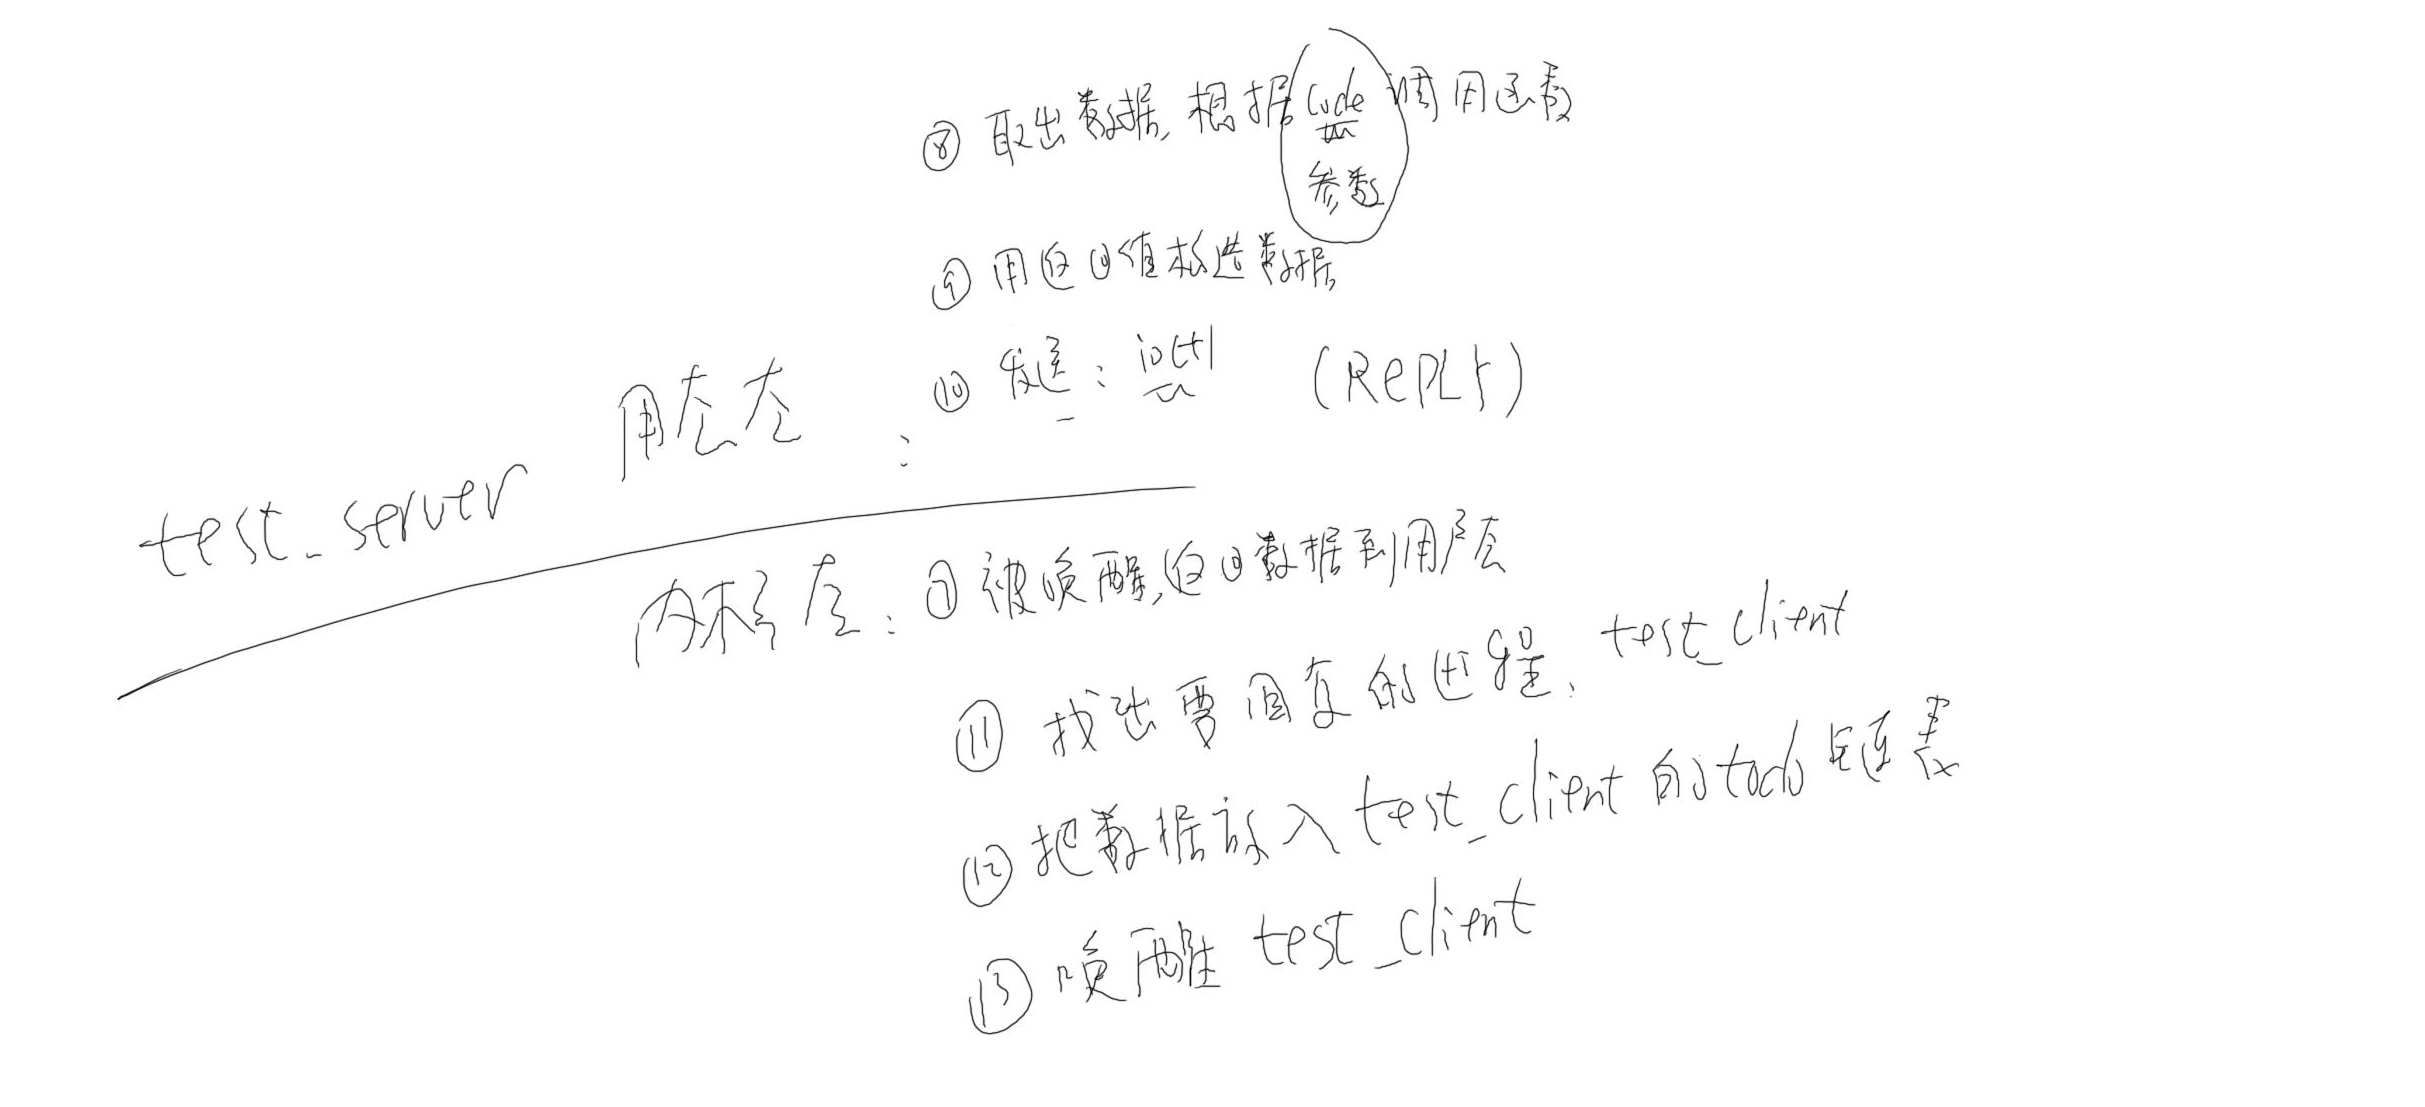 ⑧ 取出数据, 根据code 调用函数
参数
⑨ 用返回值构造数据
⑩ 发送: ioctl (REPLY)
test_server 用态态:
内核态: ⑦ 被唤醒, 返回数据到用户态
⑪ 找出要回复的进程: test_client
⑫ 把数据放入test_client的todo链表
⑬ 唤醒 test_client